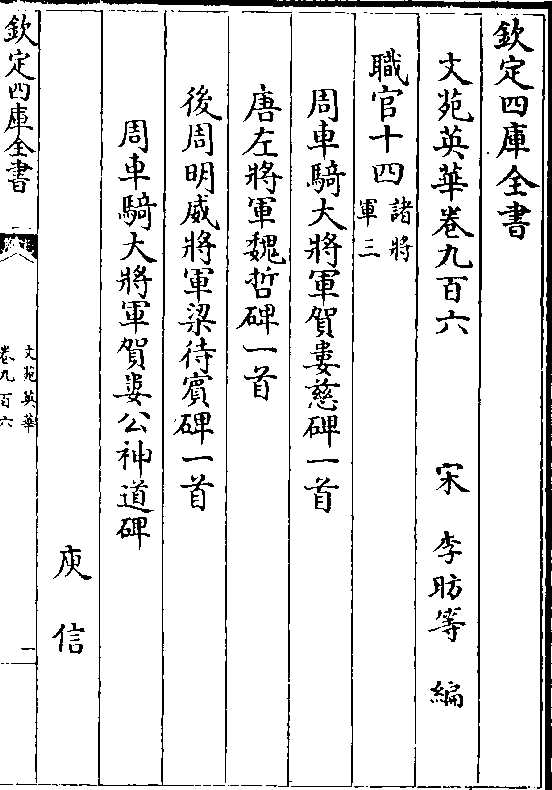 欽定四庫全書
文苑英華卷九百六　宋　李昉等　編
職官十四諸將軍三
周車騎大將軍賀婁慈碑一首
唐左將軍魏哲碑一首
後周明威將軍梁待賓碑一首
周車騎大將軍賀婁公神道碑
庾信
欽定四庫全書
文苑英華
卷九百六
一